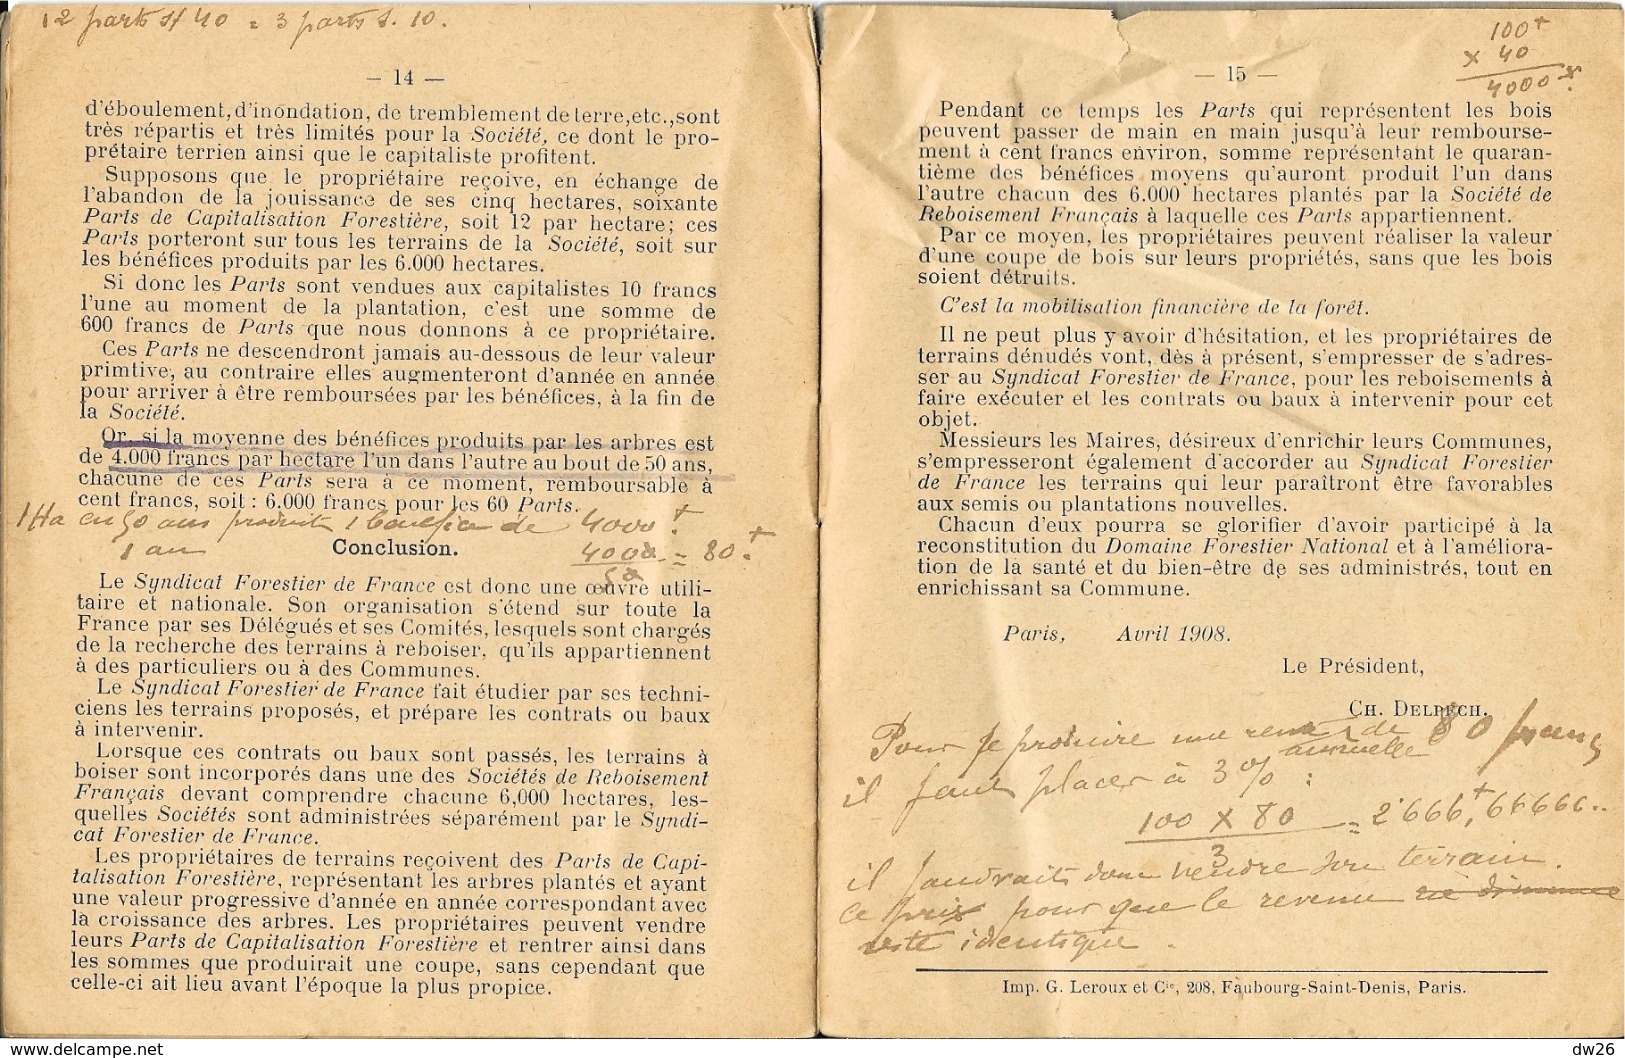 12 parts s/ 40 = 3 parts s. 10.
— 14 —
d'éboulement, d'inondation, de tremblement de terre, etc., sont
très répartis et très limités pour la Société, ce dont le pro-
prétaire terrien ainsi que le capitaliste profitent.
Supposons que le propriétaire reçoive, en échange de
l'abandon de la jouissance de ses cinq hectares, soixante
Parts de Capitalisation Forestière, soit 12 par hectare; ces
Parts porteront sur tous les terrains de la Société, soit sur
les bénéfices produits par les 6.000 hectares.
Si donc les Parts sont vendues aux capitalistes 10 francs
l'une au moment de la plantation, c'est une somme de
600 francs de Parts que nous donnons à ce propriétaire.
Ces Parts ne descendront jamais au-dessous de leur valeur
primtive, au contraire elles augmenteront d'année en année
pour arriver à être remboursées par les bénéfices, à la fin de
la Société.
Or, si la moyenne des bénéfices produits par les arbres est
de 4.000 francs par hectare l'un dans l'autre au bout de 50 ans,
chacune de ces Parts sera à ce moment, remboursable à
cent francs, soit : 6.000 francs pour les 60 Parts.
1 Ha en 50 ans produit 1 bénéfice de 4000 f
1 an 4000 = 80 f
50
Conclusion.
Le Syndicat Forestier de France est donc une œuvre utili-
taire et nationale. Son organisation s'étend sur toute la
France par ses Délégués et ses Comités, lesquels sont chargés
de la recherche des terrains à reboiser, qu'ils appartiennent
à des particuliers ou à des Communes.
Le Syndicat Forestier de France fait étudier par ses techni-
ciens les terrains proposés, et prépare les contrats ou baux
à intervenir.
Lorsque ces contrats ou baux sont passés, les terrains à
boiser sont incorporés dans une des Sociétés de Reboisement
Français devant comprendre chacune 6,000 hectares, les-
quelles Sociétés sont administrées séparément par le Syndi-
cat Forestier de France.
Les propriétaires de terrains reçoivent des Parts de Capi-
talisation Forestière, représentant les arbres plantés et ayant
une valeur progressive d'année en année correspondant avec
la croissance des arbres. Les propriétaires peuvent vendre
leurs Parts de Capitalisation Forestière et rentrer ainsi dans
les sommes que produirait une coupe, sans cependant que
celle-ci ait lieu avant l'époque la plus propice.
100 f
x 40
4000 f.
— 15 —
Pendant ce temps les Parts qui représentent les bois
peuvent passer de main en main jusqu'à leur rembourse-
ment à cent francs environ, somme représentant le quaran-
tième des bénéfices moyens qu'auront produit l'un dans
l'autre chacun des 6.000 hectares plantés par la Société de
Reboisement Français à laquelle ces Parts appartiennent.
Par ce moyen, les propriétaires peuvent réaliser la valeur
d'une coupe de bois sur leurs propriétés, sans que les bois
soient détruits.
C'est la mobilisation financière de la forêt.
Il ne peut plus y avoir d'hésitation, et les propriétaires de
terrains dénudés vont, dès à présent, s'empresser de s'adres-
ser au Syndicat Forestier de France, pour les reboisements à
faire exécuter et les contrats ou baux à intervenir pour cet
objet.
Messieurs les Maires, désireux d'enrichir leurs Communes,
s'empresseront également d'accorder au Syndicat Forestier
de France les terrains qui leur paraîtront être favorables
aux semis ou plantations nouvelles.
Chacun d'eux pourra se glorifier d'avoir participé à la
reconstitution du Domaine Forestier National et à l'améliora-
tion de la santé et du bien-être de ses administrés, tout en
enrichissant sa Commune.
Paris, Avril 1908.
Le Président,
CH. DELPECH.
Pour se produire une rente de 80 francs
annuelle
il faut placer à 3 % :
100 x 80 = 2666 f, 66666..
3
il faudrait donc vendre son terrain
ce prix pour que le revenu ne diminue
reste identique.
Imp. G. Leroux et Cie, 208, Faubourg-Saint-Denis, Paris.
dw26
www.delcampe.net